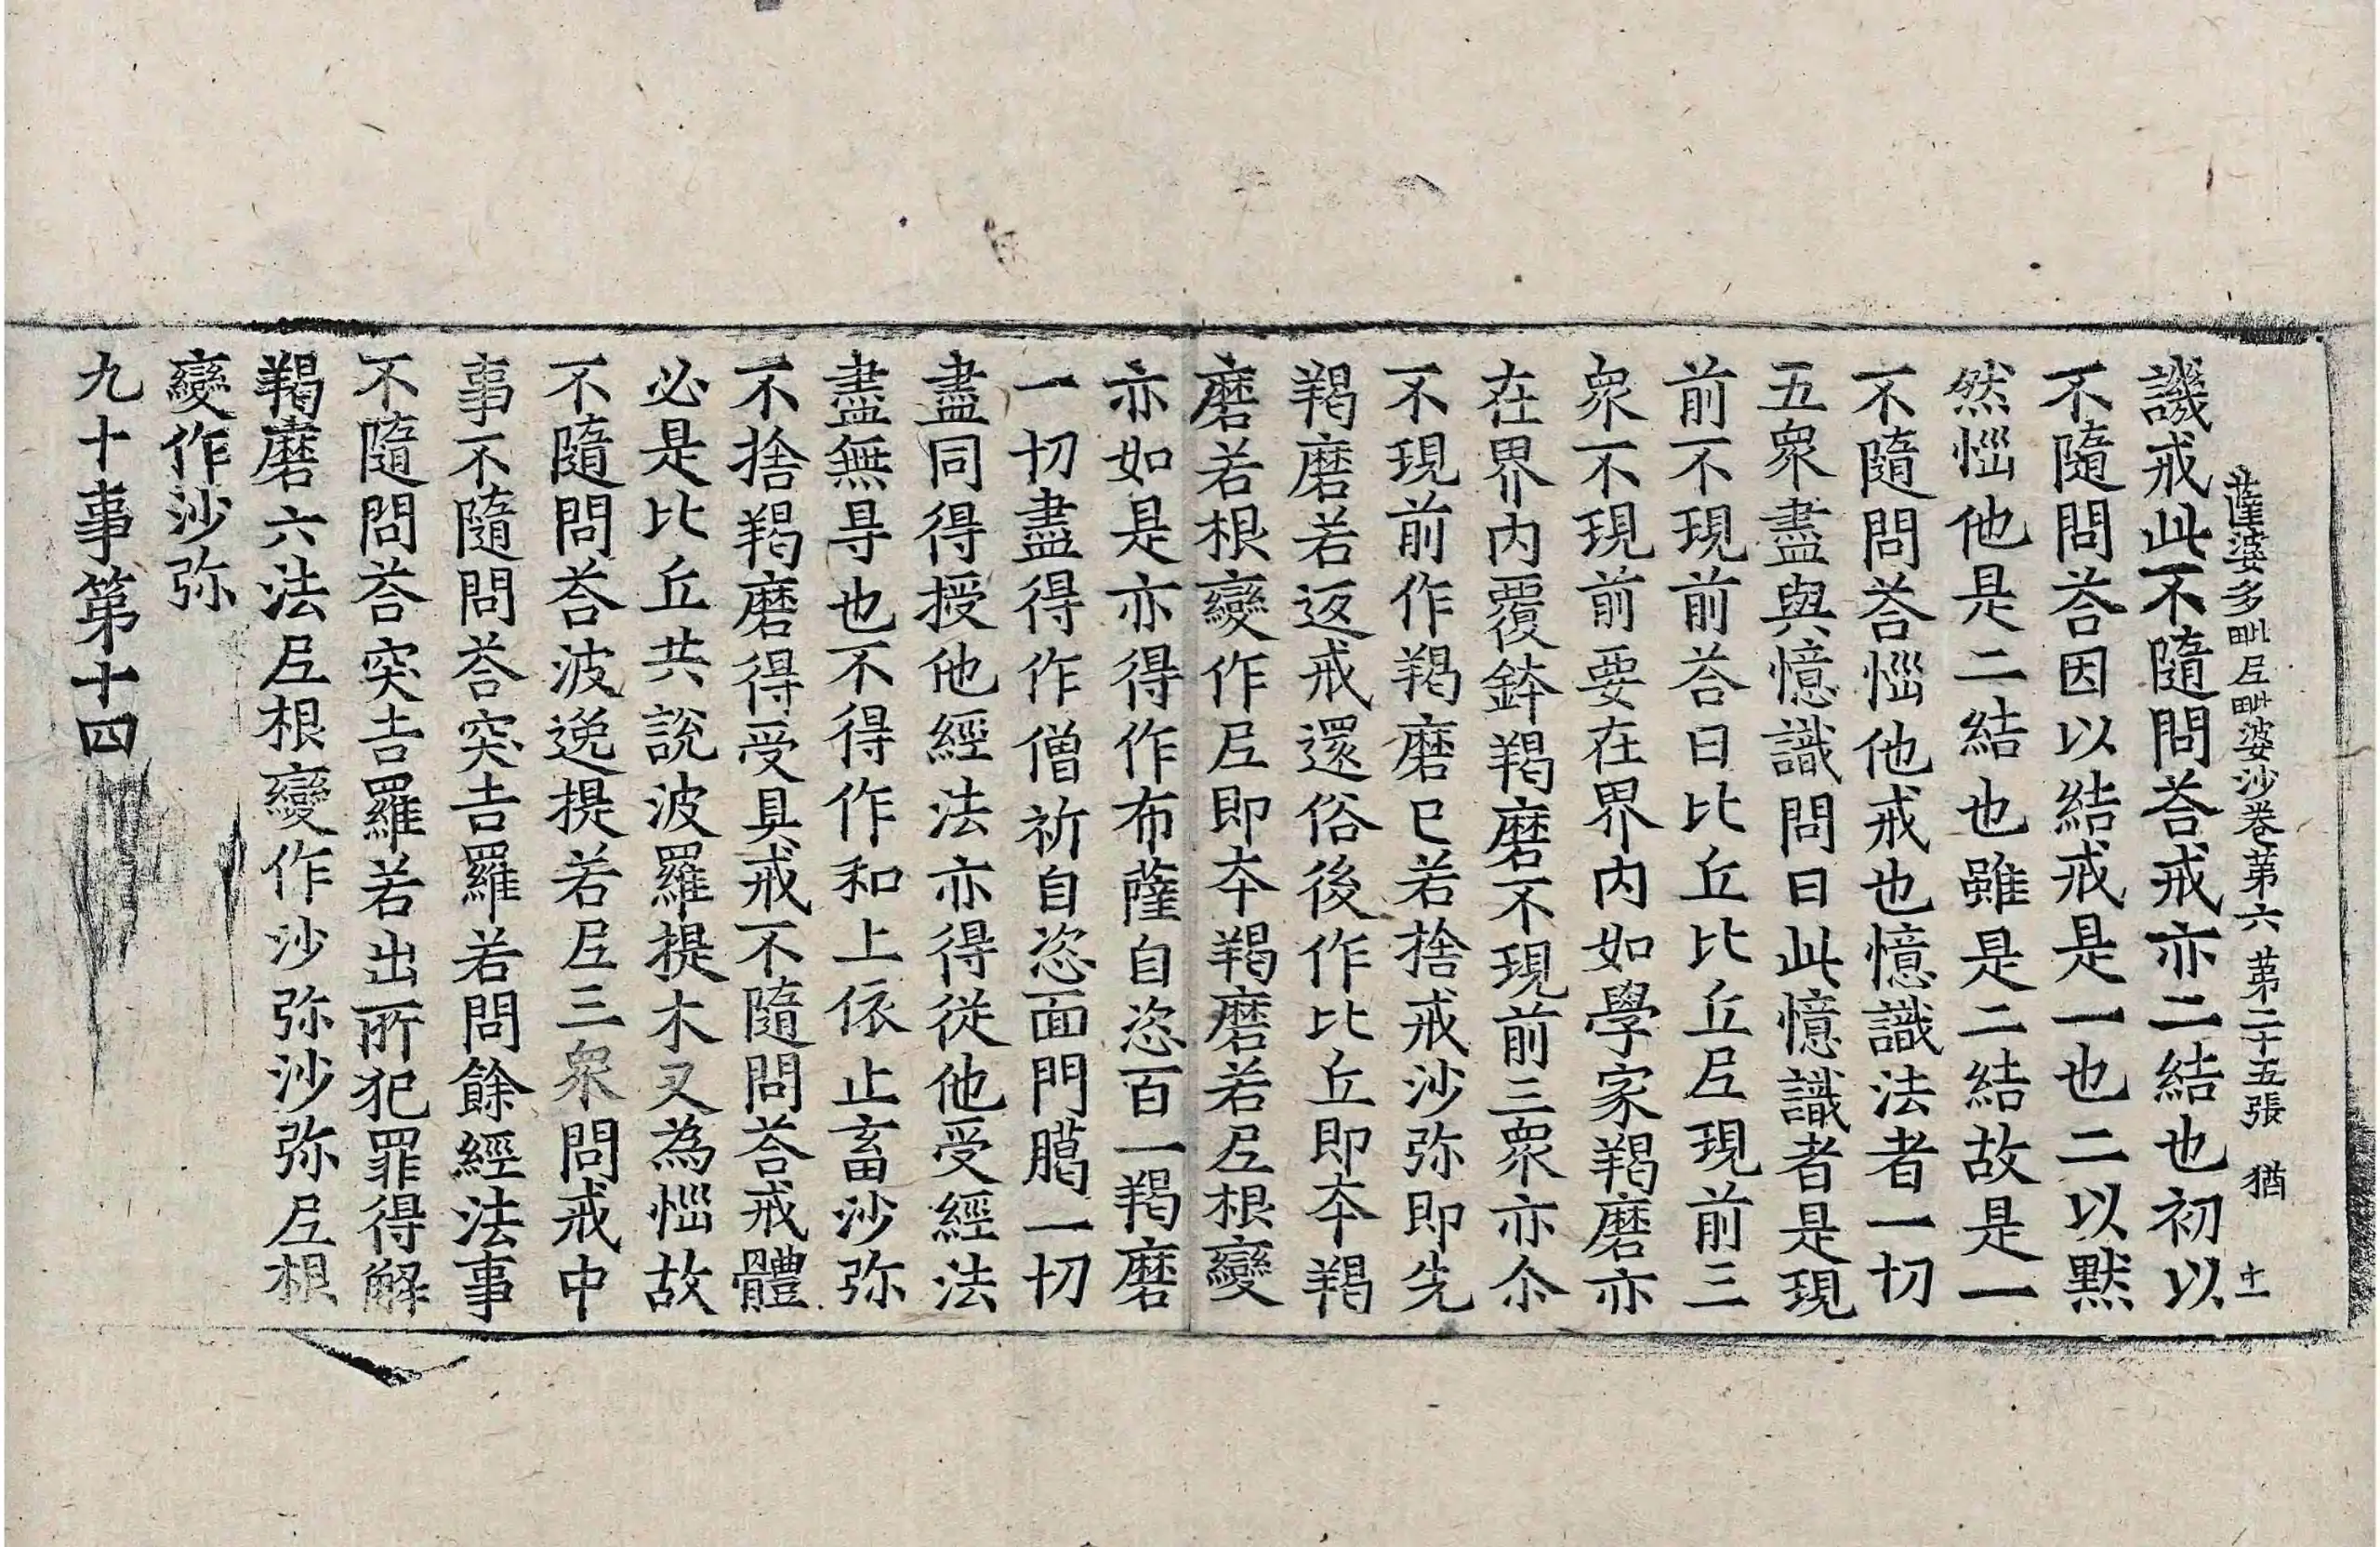 薩婆多毗尼毗婆沙卷第六 第二十五張 猶 十一
譏戒此不隨問荅戒亦二結也初以
不隨問荅因以結戒是一也二以默
然惱他是二結也雖是二結故是一
不隨問荅惱他戒也憶識法者一切
五眾盡與憶識問曰此憶識者是現
前不現前荅曰比丘比丘尼現前三
眾不現前要在界內如學家羯磨亦
在界內覆鉢羯磨不現前三眾亦尒
不現前作羯磨已若捨戒沙弥即先
羯磨若返戒還俗後作比丘即本羯
磨若根變作尼即本羯磨若尼根變
亦如是亦得作布薩自恣百一羯磨
一切盡得作僧祈自恣面門臈一切
盡同得授他經法亦得從他受經法
盡無㝵也不得作和上依止畜沙弥
不捨羯磨得受具戒不隨問荅戒體
必是比丘共說波羅提木叉為惱故
不隨問荅波逸提若尼三眾問戒中
事不隨問荅突吉羅若問餘經法事
不隨問荅突吉羅若出所犯罪得解
羯磨六法尼根變作沙弥沙弥尼根
變作沙弥
九十事第十四